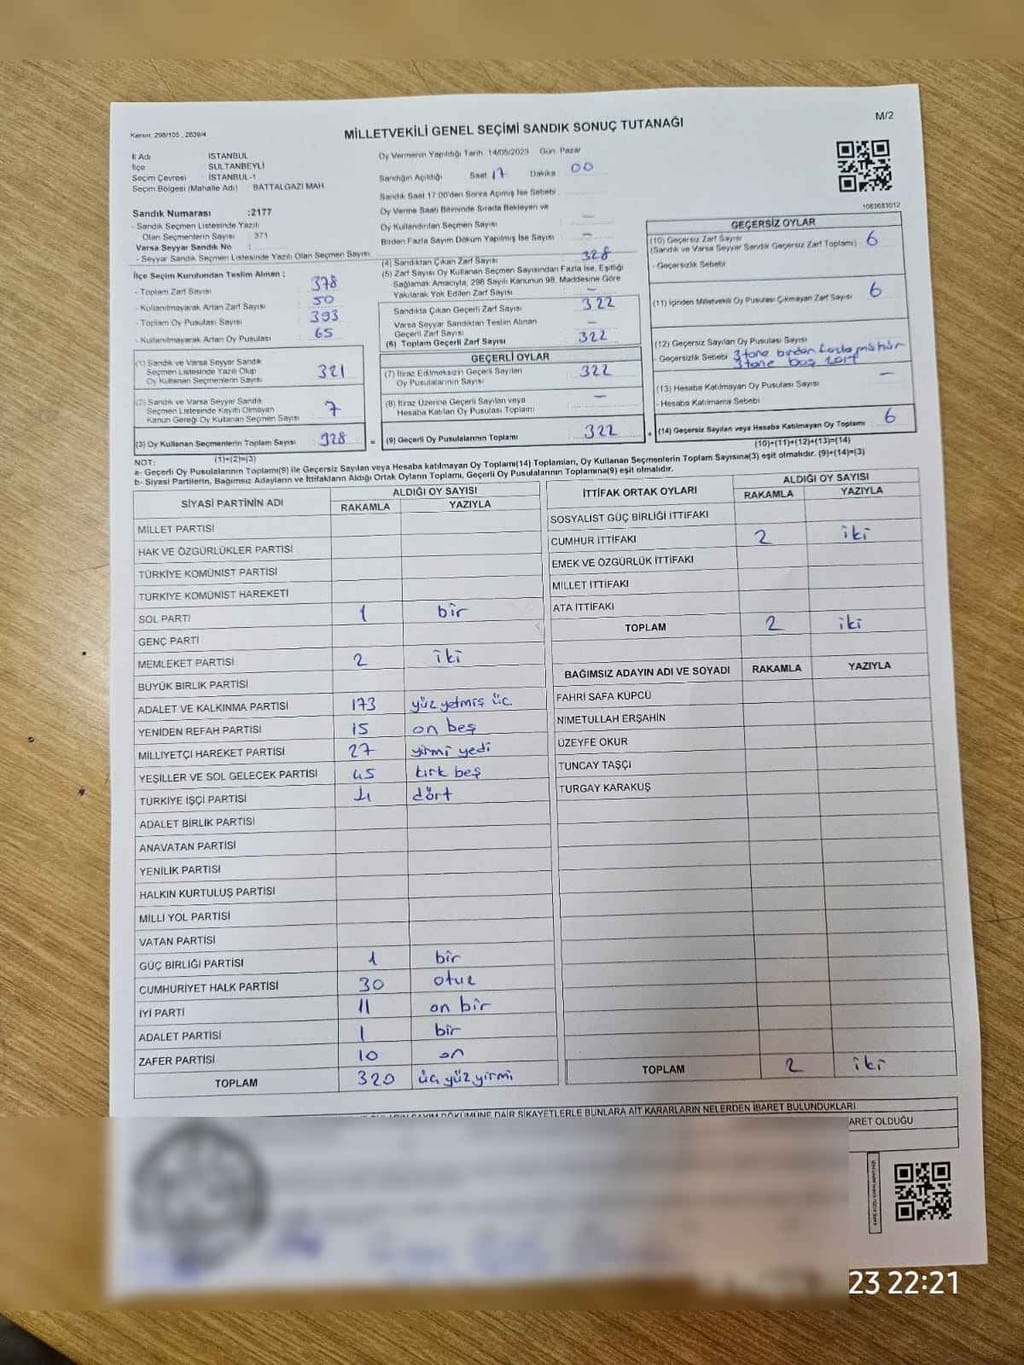 M/2
Kanun: 298/105 , 2839/4
MİLLETVEKİLİ GENEL SEÇİMİ SANDIK SONUÇ TUTANAĞI
İl Adı İSTANBUL
İlçe SULTANBEYLİ
Seçim Çevresi İSTANBUL-1
Seçim Bölgesi (Mahalle Adı) BATTALGAZİ MAH
Sandık Numarası :2177
- Sandık Seçmen Listesinde Yazılı
Olan Seçmenlerin Sayısı : 371
Varsa Seyyar Sandık No
- Seyyar Sandık Seçmen Listesinde Yazılı Olan Seçmen Sayısı
İlçe Seçim Kurulundan Teslim Alınan ;
- Toplam Zarf Sayısı 378
- Kullanılmayarak Artan Zarf Sayısı 50
- Toplam Oy Pusulası Sayısı 393
- Kullanılmayarak Artan Oy Pusulası 65
(1) Sandık ve Varsa Seyyar Sandık
Seçmen Listesinde Yazılı Olup
Oy Kullanan Seçmenlerin Sayısı 321
(2) Sandık ve Varsa Seyyar Sandık
Seçmen Listesinde Kayıtlı Olmayan
Kanun Gereği Oy Kullanan Seçmen Sayısı 7
(3) Oy Kullanan Seçmenlerin Toplam Sayısı 328 =
(1)+(2)=(3)
Oy Vermenin Yapıldığı Tarih: 14/05/2023 Gün: Pazar
Sandığın Açıldığı Saat 17 Dakika 00
Sandık Saat 17.00'den Sonra Açılmış İse Sebebi
Oy Verme Saati Bitiminde Sırada Bekleyen ve
Oy Kullandırılan Seçmen Sayısı —
Birden Fazla Sayım Döküm Yapılmış İse Sayısı —
(4) Sandıktan Çıkan Zarf Sayısı 328
(5) Zarf Sayısı Oy Kullanan Seçmen Sayısından Fazla İse, Eşitliği
Sağlamak Amacıyla, 298 Sayılı Kanunun 98. Maddesine Göre
Yakılarak Yok Edilen Zarf Sayısı —
Sandıkta Çıkan Geçerli Zarf Sayısı 322
Varsa Seyyar Sandıktan Teslim Alınan
Geçerli Zarf Sayısı —
(6) Toplam Geçerli Zarf Sayısı 322
GEÇERLİ OYLAR
(7) İtiraz Edilmeksizin Geçerli Sayılan
Oy Pusulalarının Sayısı 322
(8) İtiraz Üzerine Geçerli Sayılan veya
Hesaba Katılan Oy Pusulası Toplamı —
(9) Geçerli Oy Pusulalarının Toplamı 322 +
1083683012
GEÇERSİZ OYLAR
(10) Geçersiz Zarf Sayısı
(Sandık ve Varsa Seyyar Sandık Geçersiz Zarf Toplamı) 6
- Geçersizlik Sebebi
(11) İçinden Milletvekili Oy Pusulası Çıkmayan Zarf Sayısı 6
(12) Geçersiz Sayılan Oy Pusulası Sayısı
- Geçersizlik Sebebi 3 tane birden fazla mühür
3 tane boş zarf
(13) Hesaba Katılmayan Oy Pusulası Sayısı —
- Hesaba Katılmama Sebebi
(14) Geçersiz Sayılan veya Hesaba Katılmayan Oy Toplamı 6
(10)+(11)+(12)+(13)=(14)
NOT:
a- Geçerli Oy Pusulalarının Toplamı(9) ile Geçersiz Sayılan veya Hesaba katılmayan Oy Toplamı(14) Toplamları, Oy Kullanan Seçmenlerin Toplam Sayısına(3) eşit olmalıdır. (9)+(14)=(3)
b- Siyasi Partilerin, Bağımsız Adayların ve İttifakların Aldığı Ortak Oyların Toplamı, Geçerli Oy Pusulalarının Toplamına(9) eşit olmalıdır.
SİYASİ PARTİNİN ADI ALDIĞI OY SAYISI
RAKAMLA YAZIYLA
MİLLET PARTİSİ
HAK VE ÖZGÜRLÜKLER PARTİSİ
TÜRKİYE KOMÜNİST PARTİSİ
TÜRKİYE KOMÜNİST HAREKETİ
SOL PARTİ 1 bir
GENÇ PARTİ
MEMLEKET PARTİSİ 2 iki
BÜYÜK BİRLİK PARTİSİ
ADALET VE KALKINMA PARTİSİ 173 yüz yetmiş üç
YENİDEN REFAH PARTİSİ 15 on beş
MİLLİYETÇİ HAREKET PARTİSİ 27 yirmi yedi
YEŞİLLER VE SOL GELECEK PARTİSİ 45 kırk beş
TÜRKİYE İŞÇİ PARTİSİ 4 dört
ADALET BİRLİK PARTİSİ
ANAVATAN PARTİSİ
YENİLİK PARTİSİ
HALKIN KURTULUŞ PARTİSİ
MİLLİ YOL PARTİSİ
VATAN PARTİSİ
GÜÇ BİRLİĞİ PARTİSİ 1 bir
CUMHURİYET HALK PARTİSİ 30 otuz
İYİ PARTİ 11 on bir
ADALET PARTİSİ 1 bir
ZAFER PARTİSİ 10 on
TOPLAM 320 üç yüz yirmi
İTTİFAK ORTAK OYLARI ALDIĞI OY SAYISI
RAKAMLA YAZIYLA
SOSYALİST GÜÇ BİRLİĞİ İTTİFAKI
CUMHUR İTTİFAKI 2 iki
EMEK VE ÖZGÜRLÜK İTTİFAKI
MİLLET İTTİFAKI
ATA İTTİFAKI
TOPLAM 2 iki
BAĞIMSIZ ADAYIN ADI VE SOYADI RAKAMLA YAZIYLA
FAHRİ SAFA KÜPCÜ
NİMETULLAH ERŞAHİN
ÜZEYFE OKUR
TUNCAY TAŞÇI
TURGAY KARAKUŞ
TOPLAM 2 iki
SAYIM DÖKÜMÜNE DAİR ŞİKAYETLERLE BUNLARA AİT KARARLARIN NELERDEN İBARET BULUNDUKLARI
ARET OLDUĞU
23 22:21